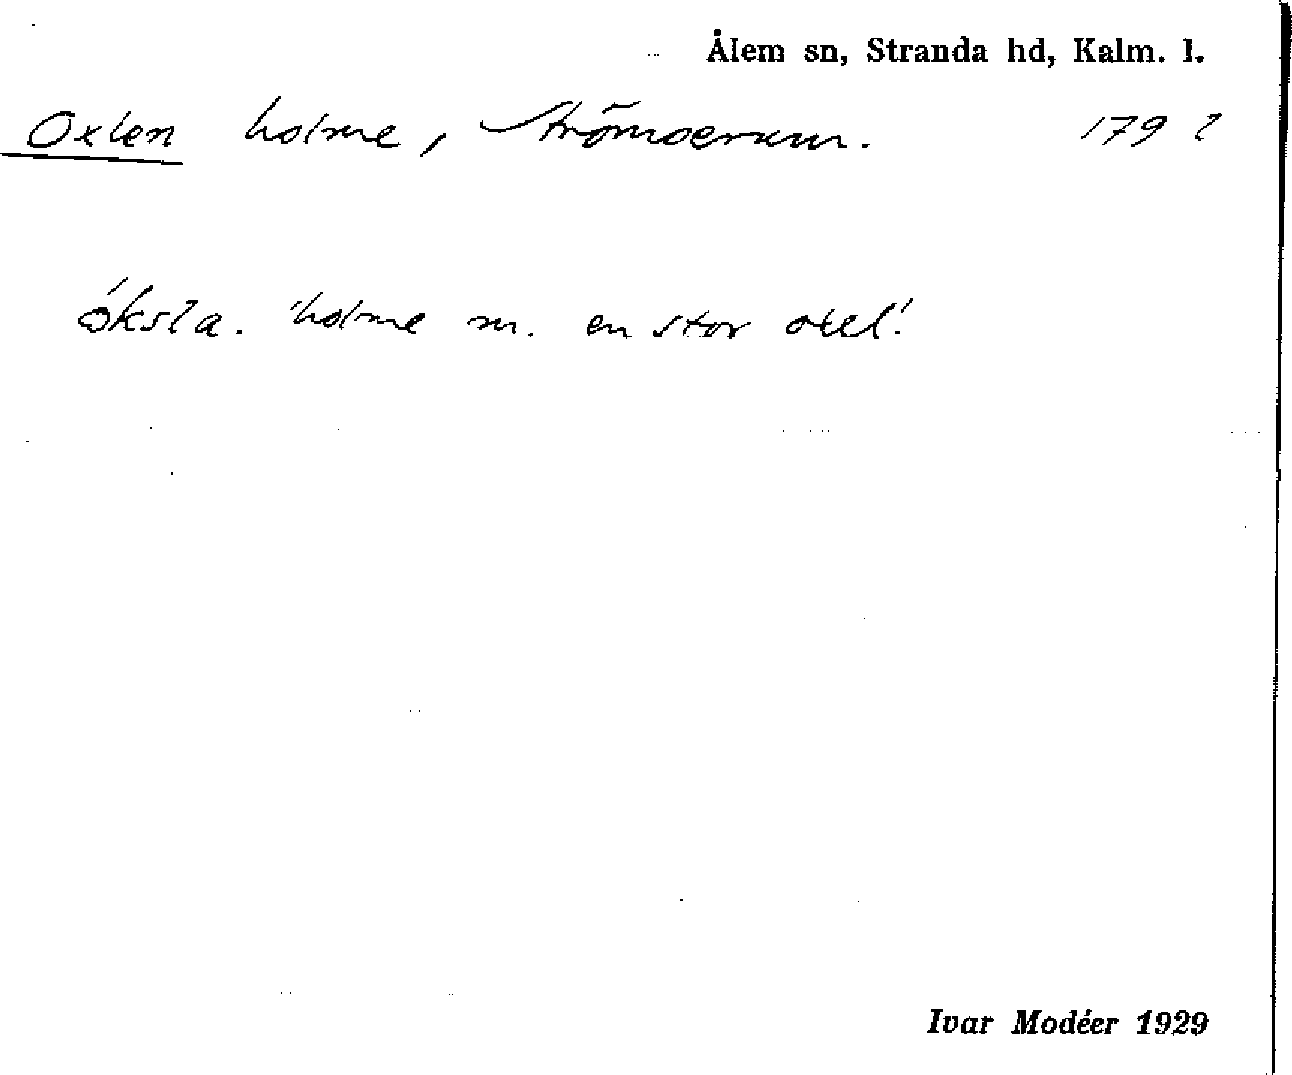 Ålem sn, Stranda hd, Kalm. l.
Oxlen holme, Strömserum. 179 ?
óksla. 'holme m. en stor oxel.'
Ivar Modéer 1929